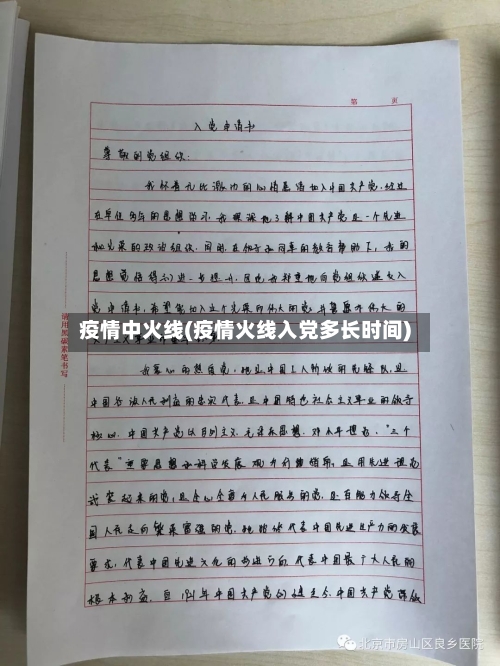 第 页
入党申请书
尊敬的党组织:
我怀着无比激动的心情恳请加入中国共产党。经过
在单位多年的思想学习,我深深地了解中国共产党是一个先进
和光荣的政治组织,同时,在领导和同事的教育帮助下,我的
思想觉悟得到进一步提升,因此我郑重地向党组织递交入
党申请书,希望能加入这个光荣而伟大的党
疫情中火线(疫情火线入党多长时间)
我衷心的热爱党,她是中国工人阶级的先锋队,是
中国各族人民利益的忠实代表,是中国特色社会主义事业的领导
核心。中国共产党以马列主义、毛泽东思想、邓小平理论、"三个
代表"重要思想和科学发展观为行动指南,是用先进理论
武装起来的党,是全心全意为人民服务的党,是有能力领导全
国人民走向繁荣富强的党。她始终代表中国先进生产力的发展
要求,代表中国先进文化的前进方向,代表中国最广大人民的
根本利益。自1921年中国共产党
请用黑碳素笔书写
北京市房山区良乡医院